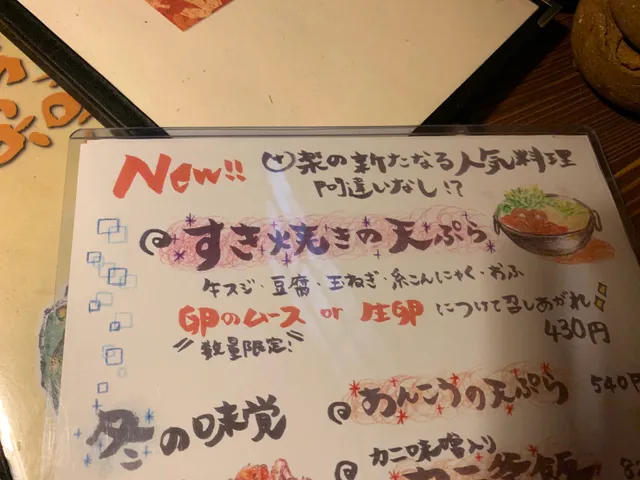 New!! 梨の新たなる人気料理
間違いなし!?
すき焼きの天ぷら
牛スジ・豆腐・玉ねぎ・糸こんにゃく・おふ
卵のムース or 生卵 につけて召しあがれ
数量限定!
430円
冬の味覚
あんこうの天ぷら 540円
カニ味噌入り